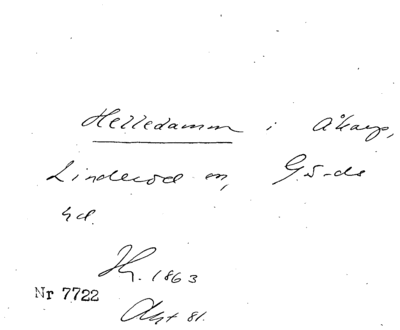 Helledamm i Åkarp,
Linderöd sn, Gärds
hd.
Hy. 1863
Nr 7722
Akt 81.